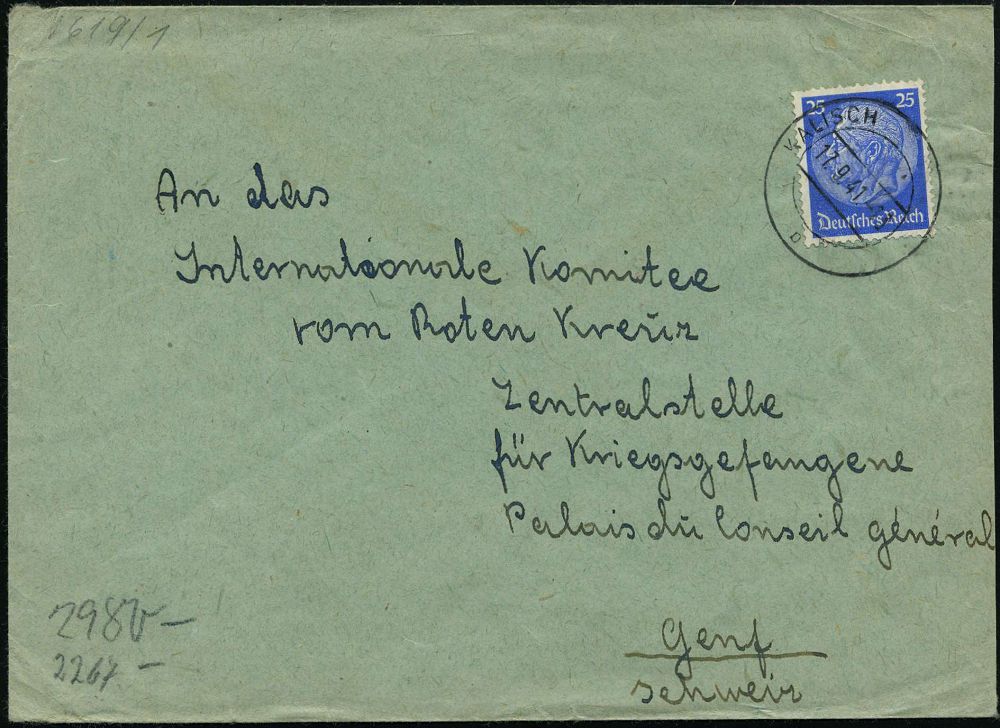 619/1
25 25
KALISCH
17.9.41
Deutsches Reich
An das
Internationale Komitee
vom Roten Kreuz
Zentralstelle
für Kriegsgefangene
Palais du Conseil général
Genf
Schweiz
298V-
2267 -